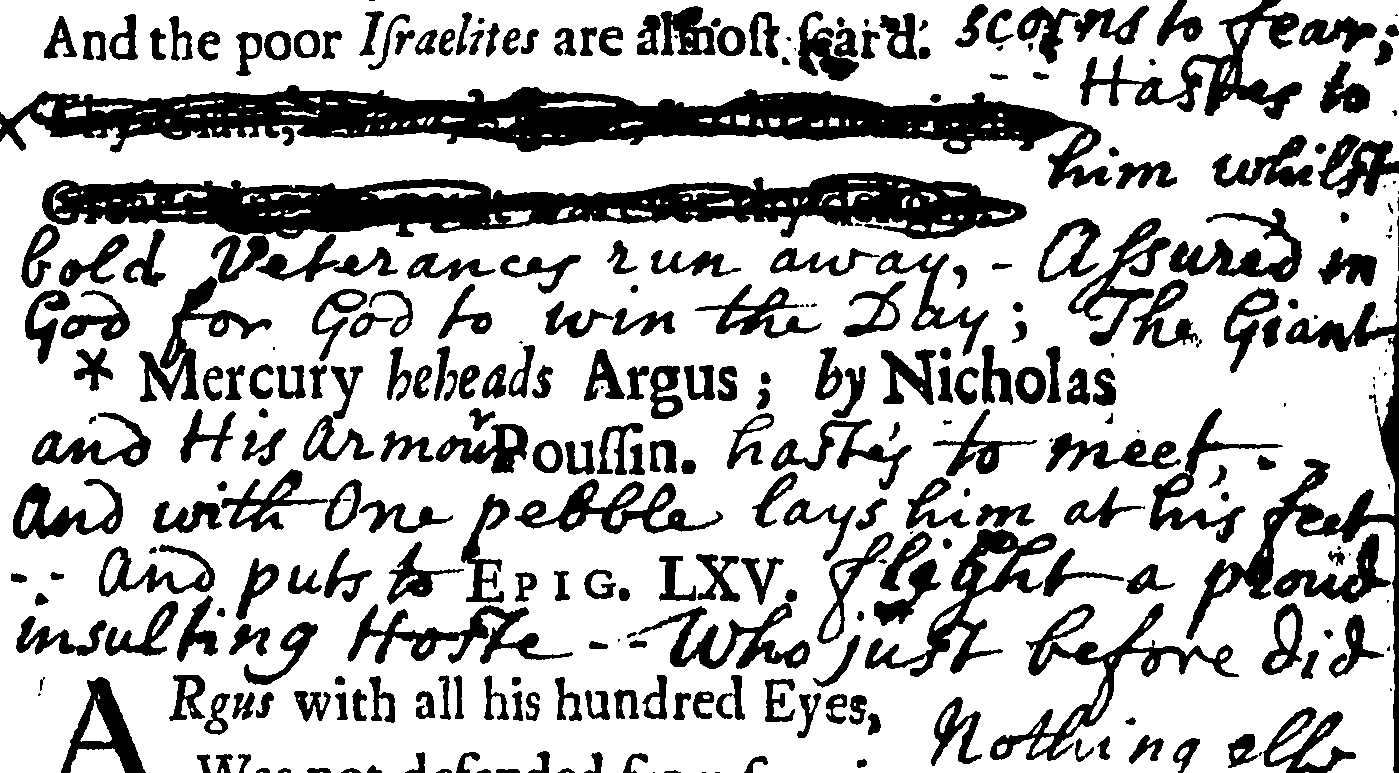 And the poor Iſraelites are almoſt ſcar'd. scorns to fear;
-- Hastes to
him whilst
bold Veterances run away, - Aſsured in
God for God to win the Day; The Giant
* Mercury beheads Argus; by Nicholas
and His Armour Pouſſin. hastes to meet, --
And with One pebble lays him at his feet
-- And puts to EPIG. LXV. flight a proud
insulting Hoste -- Who just before did
ARgus with all his hundred Eyes,
Nothing elſe
Was not defended